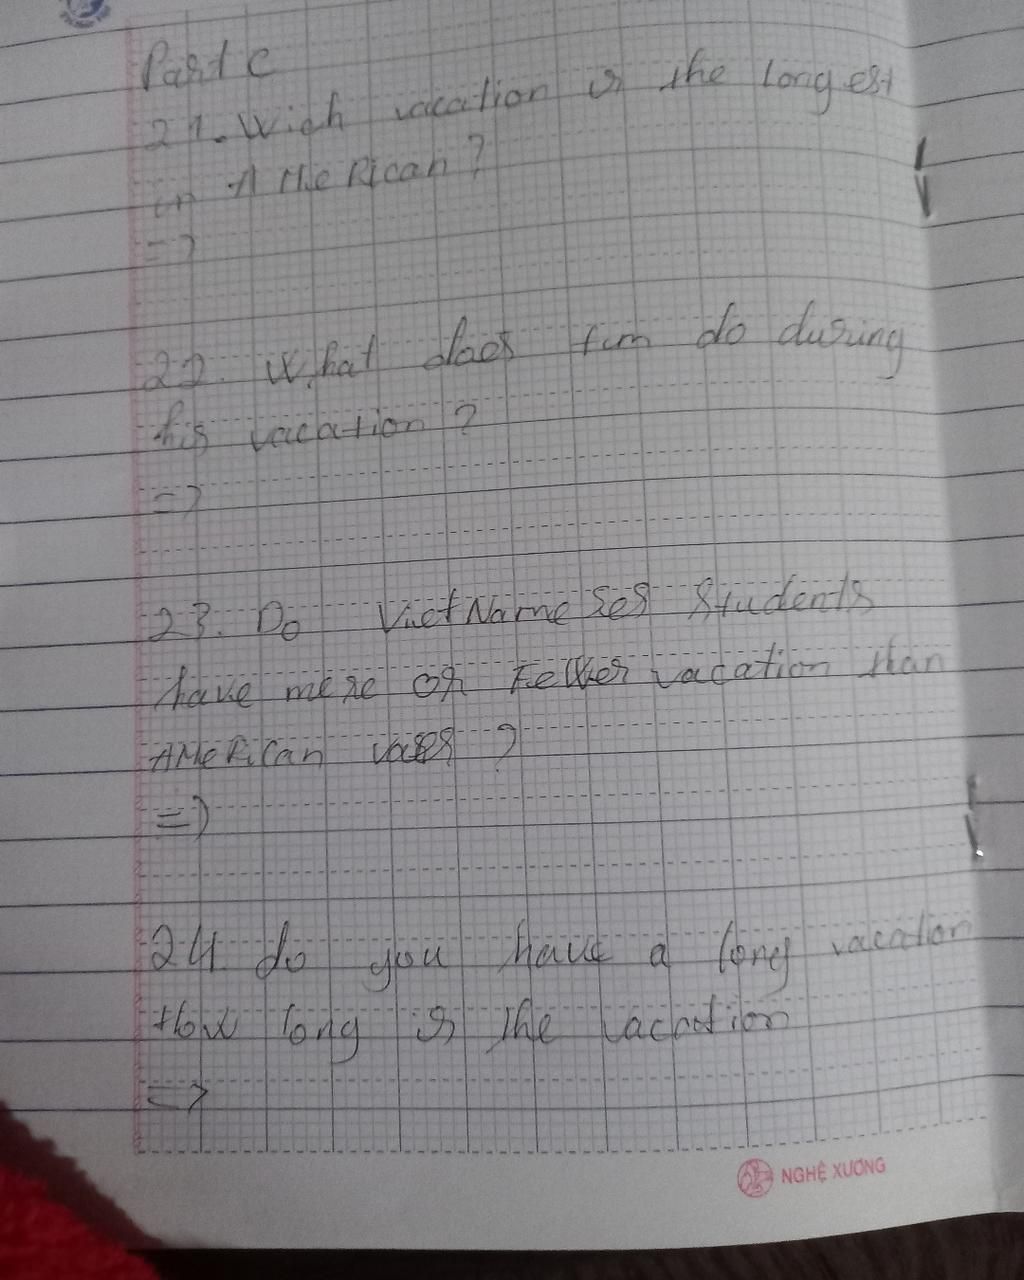 Part C
21. Wich vacation is the longest
in AMeRican?
=>
22. What does tim do during
his vacation?
=>
23. Do VietNameses students
have more or Fewer vacation than
AMeRican
?
=>
24 do you have a long vacation
How long is the vacation
=>
NGHỆ XƯƠNG